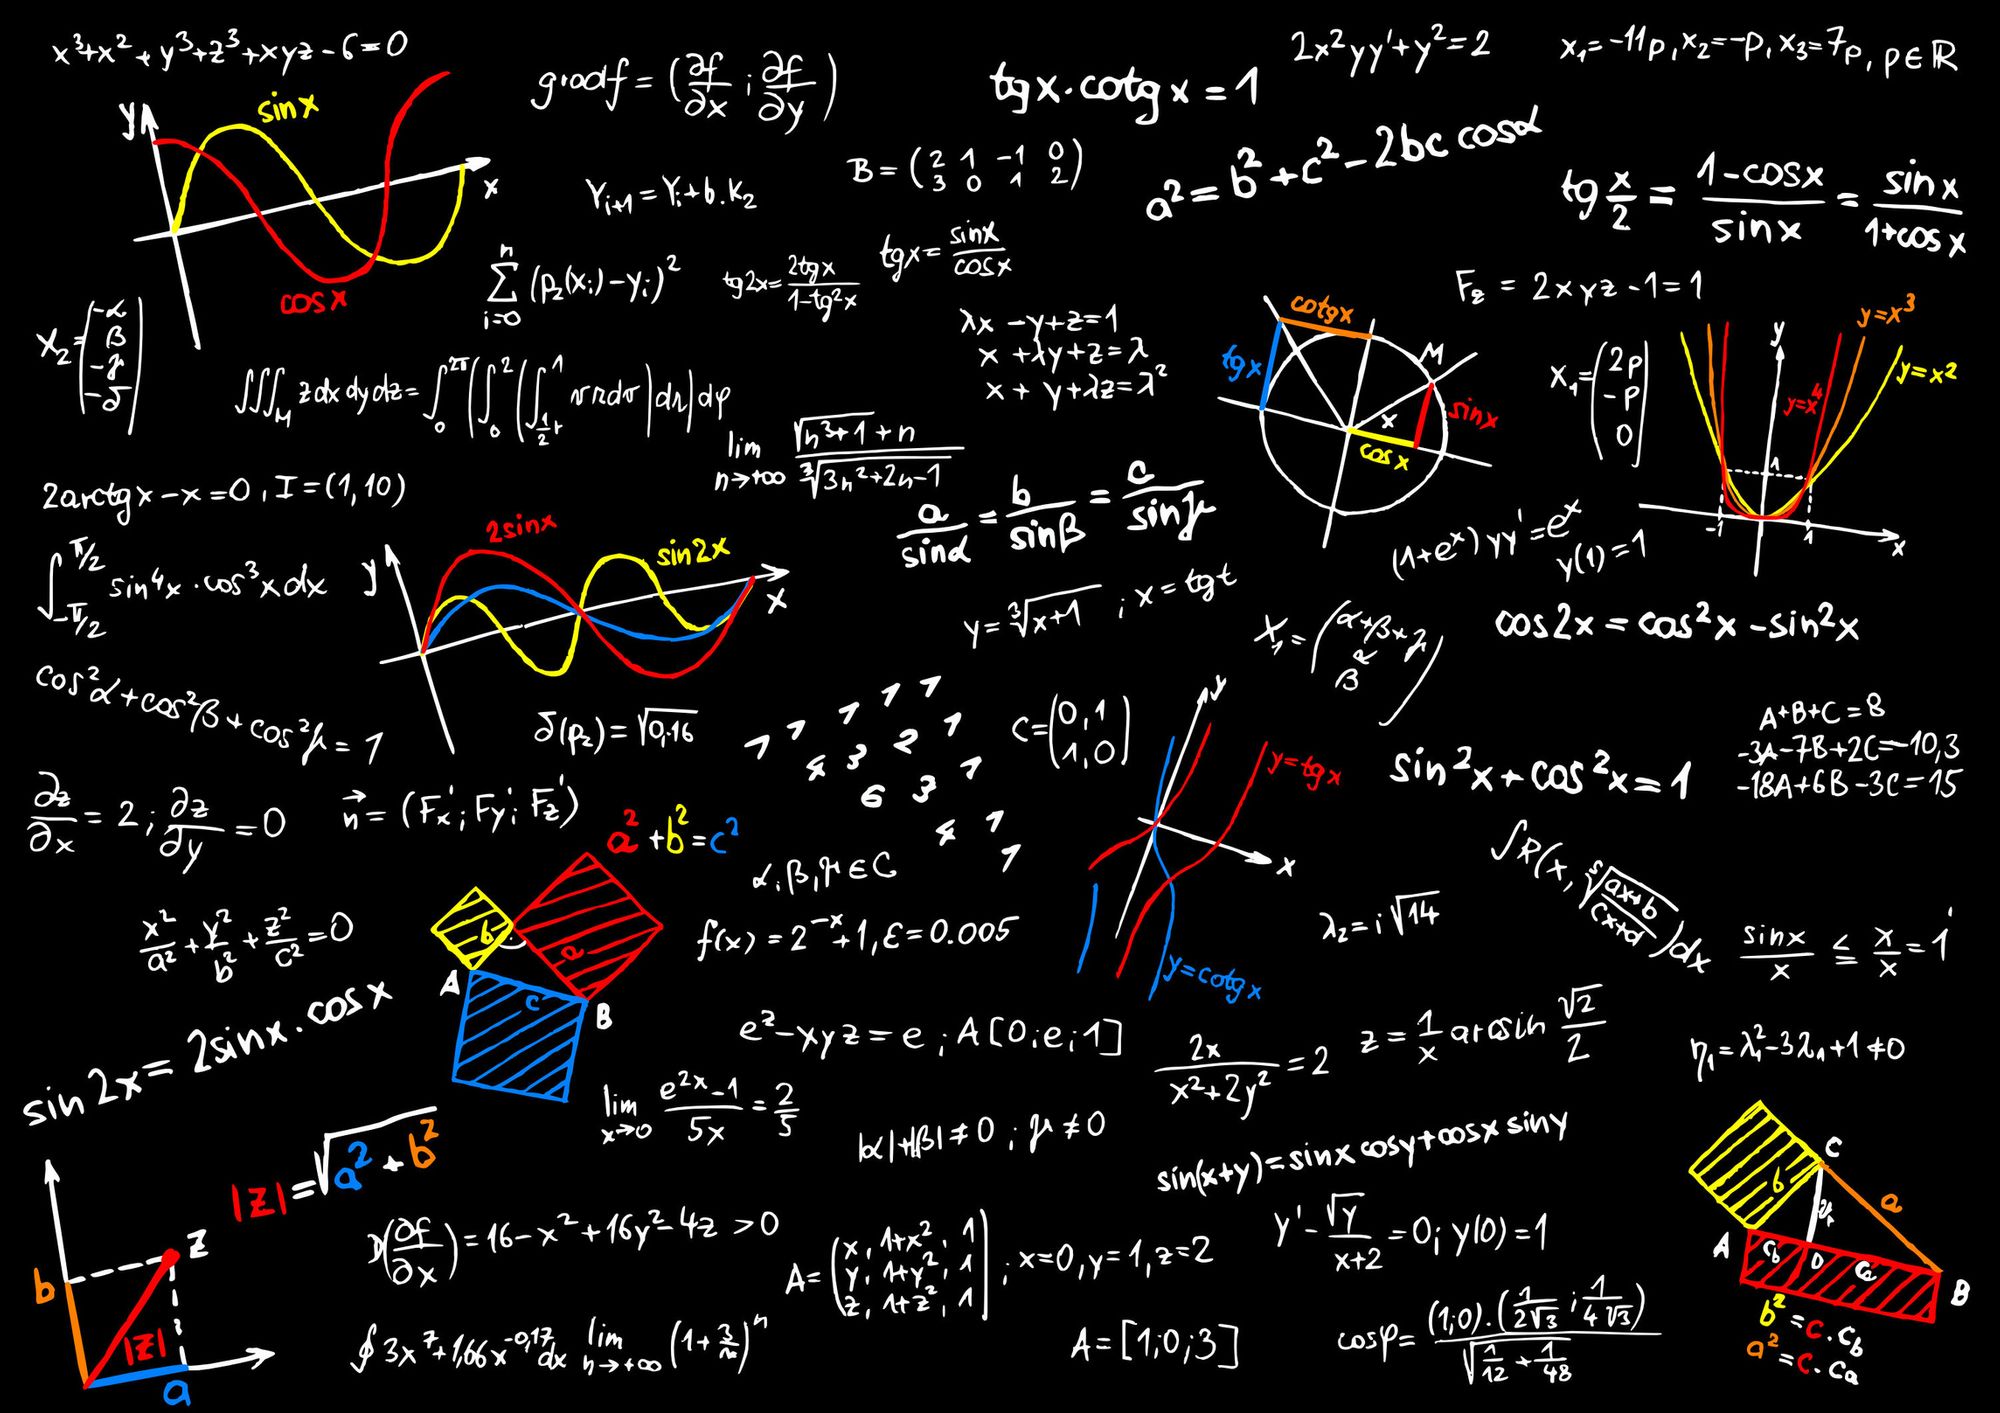 x³+x²+y³+z³+xyz-6=0
gradf = (∂f/∂x ; ∂f/∂y)
tgx·cotgx=1
2x²yy'+y²=2
x₁=-11p, x₂=-p, x₃=7p, p∈ℝ
y
sinx
x
cosx
Yᵢ₊₁=Yᵢ+b.K₂
B=(2 1 -1 0
3 0 1 2)
a²=b²+c²-2bc cosα
tg x/2 = (1-cosx)/sinx = sinx/(1+cosx)
∑ᵢ₌₀ⁿ (p₂(xᵢ)-yᵢ)²
tg2x=2tgx/(1-tg²x)
tgx=sinx/cosx
F₂ = 2xyz-1=1
X₂=(-α
β
-γ
-δ)
∭M zdxdydz=∫₀^2π(∫₀²(
λx-y+z=1
x+λy+z=λ
x+y+λz=λ²
cotgx
tgx
M
sinx
x
cosx
X₁=(2p
-p
0)
y
y=x³
y=x²
y=x⁴
1
-1
1
x
lim n→+∞ (√(n³+1)+n)/∛(3n²+2n-1)
2arctgx-x=0, I=(1,10)
a/sinα=b/sinβ=c/sinγ
(1+eˣ)yy'=eˣ
y(1)=1
∫₋π/₂^π/2 sin⁴x·cos³xdx
y
2sinx
sin2x
x
y=∛(x+1) ; x=tgt
X₁=(α+β+γ
β)
cos2x=cos²x-sin²x
cos²α+cos²β+cos²γ=1
δ(p₂)=√0,16
1 1 1 1 1
4 3 2 1
6 3 1
4 1
1
C=(0,1
1,0)
y
y=tgx
x
y=cotgx
sin²x+cos²x=1
A+B+C=8
-3A-7B+2C=-10,3
-18A+6B-3C=15
∂z/∂x=2; ∂z/∂y=0
n⃗=(Fx'; Fy'; Fz')
a²+b²=c²
b
a
c
A
B
α,β,γ∈C
∫R(x, ⁵√((ax+b)/(cx+d)))dx
x²/a²+y²/b²+z²/c²=0
f(x)=2⁻ˣ+1, ε=0.005
λ₂=i√14
sinx/x ≤ x/x=1
sin2x=2sinx·cosx
e^z-xyz=e; A[0;e;1]
2x/(x²+2y²)=2
z=1/x arcsin √2/2
η₁=λ₁²-3λ₁+1≠0
lim x→0 (e²ˣ-1)/5x=2/5
|α|+|β|≠0; γ≠0
sin(x+y)=sinx cosy+cosx siny
|z|=√(a²+b²)
z
b
|z|
a
D(∂f/∂x)=16-x²+16y²-4z>0
A=(x, 1+x², 1
y, 1+y², 1
z, 1+z², 1) ; x=0, y=1, z=2
y'-√y/(x+2)=0; y(0)=1
C
b
a
A
c_b
D
c_a
B
b²=c.c_b
a²=c.c_a
∮3x⁷+1,66x^-0,17dx
lim n→+∞ (1+3/n)ⁿ
A=[1;0;3]
cosφ=(1;0).(1/2√3 ; 1/4√3)/√(1/12+1/48)